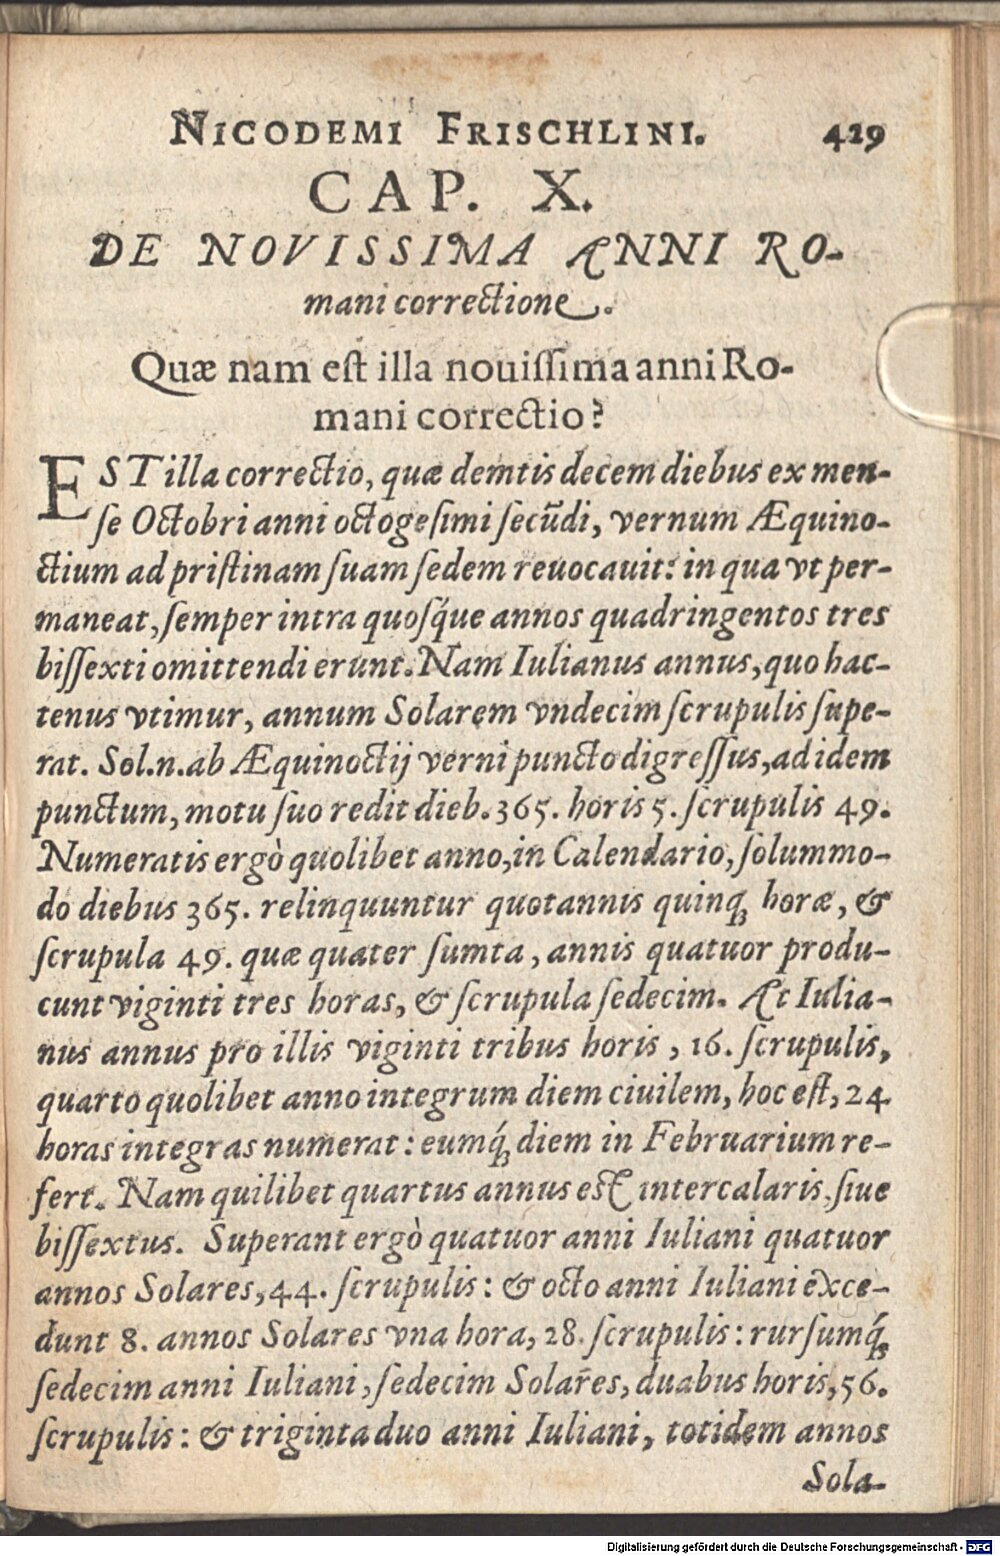 NICODEMI FRISCHLINI. 429
CAP. X.
DE NOVISSIMA ANNI RO-
mani correctione.
Quæ nam est illa nouissima anni Ro-
mani correctio?
EST illa correctio, quæ demtis decem diebus ex men-
se Octobri anni octogesimi secũdi, vernum Æquino-
ctium ad pristinam suam sedem reuocauit: in qua vt per-
maneat, semper intra quosq́ue annos quadringentos tres
bissexti omittendi erunt. Nam Iulianus annus, quo hac-
tenus vtimur, annum Solarem vndecim scrupulis supe-
rat. Sol.n.ab Æquinoctij verni puncto digressus, ad idem
punctum, motu suo redit dieb. 365. horis 5. scrupulis 49.
Numeratis ergò quolibet anno, in Calendario, solummo-
do diebus 365. relinquuntur quotannis quinqꝫ horæ, &
scrupula 49. quæ quater sumta, annis quatuor produ-
cunt viginti tres horas, & scrupula sedecim. At Iulia-
nus annus pro illis viginti tribus horis, 16. scrupulis,
quarto quolibet anno integrum diem ciuilem, hoc est, 24
horas integras numerat: eumq́ꝫ diem in Februarium re-
fert. Nam quilibet quartus annus est intercalaris, siue
bissextus. Superant ergò quatuor anni Iuliani quatuor
annos Solares, 44. scrupulis: & octo anni Iuliani exce-
dunt 8. annos Solares vna hora, 28. scrupulis: rursumq́ꝫ
sedecim anni Iuliani, sedecim Solares, duabus horis, 56.
scrupulis: & triginta duo anni Iuliani, totidem annos
Sola-
Digitalisierung gefördert durch die Deutsche Forschungsgemeinschaft - DFG